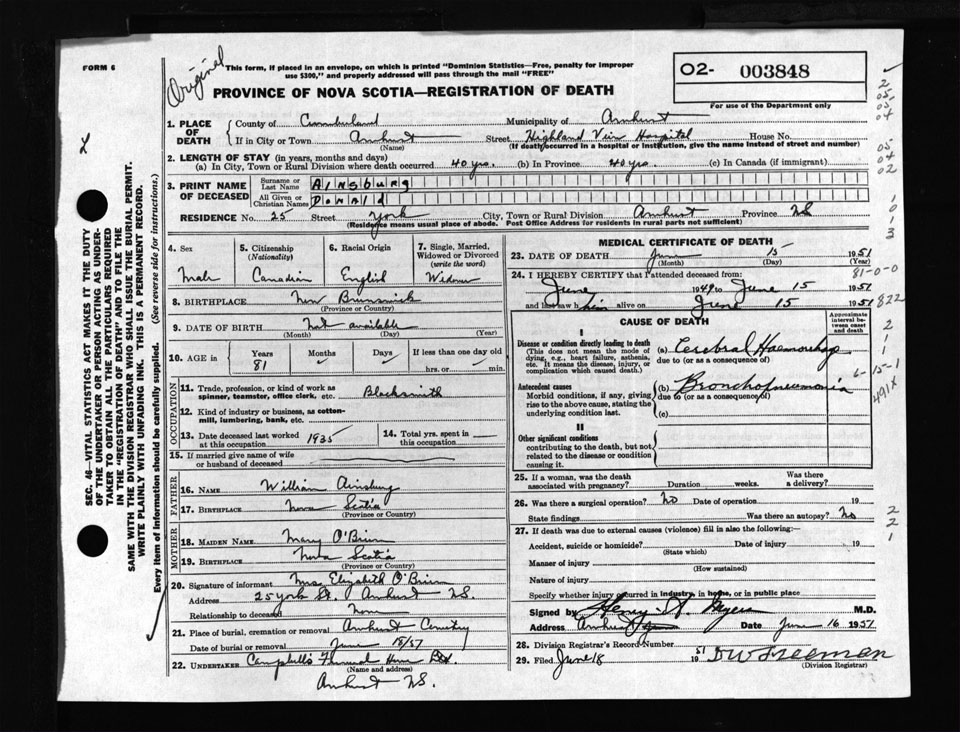 FORM 6
Original
This form, if placed in an envelope, on which is printed "Dominion Statistics—Free, penalty for improper
use $300," and properly addressed will pass through the mail "FREE"
PROVINCE OF NOVA SCOTIA—REGISTRATION OF DEATH
O2- 003848
For use of the Department only
1. PLACE OF DEATH
County of Cumberland Municipality of Amherst
If in City or Town Amherst Street Highland View Hospital House No.
(Name) (If death occurred in a hospital or institution, give the name instead of street and number)
2. LENGTH OF STAY (in years, months and days)
(a) In City, Town or Rural Division where death occurred 40 yrs. (b) In Province 40 yrs. (c) In Canada (if immigrant)
3. PRINT NAME OF DECEASED
Surname or Last Name Ainsburg
All Given or Christian Names Donald
RESIDENCE No. 25 Street York City, Town or Rural Division Amherst Province NS
(Residence means usual place of abode. Post Office Address for residents in rural parts not sufficient)
4. Sex
Male
5. Citizenship (Nationality)
Canadian
6. Racial Origin
English
7. Single, Married, Widowed or Divorced (write the word)
Widower
8. BIRTHPLACE New Brunswick
(Province or Country)
9. DATE OF BIRTH Not available
(Month) (Day) (Year)
10. AGE in Years Months Days If less than one day old
81 hrs. or min.
OCCUPATION
11. Trade, profession, or kind of work as
spinner, teamster, office clerk, etc. Blacksmith
12. Kind of industry or business, as cotton-
mill, lumbering, bank, etc.
13. Date deceased last worked
at this occupation 1935
14. Total yrs. spent in
this occupation
15. If married give name of wife
or husband of deceased
FATHER
16. NAME William Ainsburg
17. BIRTHPLACE Nova Scotia
(Province or Country)
MOTHER
18. MAIDEN NAME Mary O'Brien
19. BIRTHPLACE Nova Scotia
(Province or Country)
20. Signature of informant Mrs Elizabeth O'Brien
Address 25 York St. Amherst NS.
Relationship to deceased None
21. Place of burial, cremation or removal Amherst Cemetery
Date of burial or removal June 18/51
22. UNDERTAKER Campbell's Funeral Home Ltd.
(Name and address)
Amherst NS.
MEDICAL CERTIFICATE OF DEATH
23. DATE OF DEATH June 15 1951
(Month) (Day) (Year)
24. I HEREBY CERTIFY that I attended deceased from:
June 1949 to June 15 1951
and last saw him alive on June 15 1951
CAUSE OF DEATH
Approximate interval between onset and death
I
Disease or condition directly leading to death
(This does not mean the mode of
dying, e.g., heart failure, asthenia,
etc. It means the disease, injury, or
complication which caused death.)
(a) Cerebral Haemorrhage
due to (or as a consequence of)
Antecedent causes
Morbid conditions, if any, giving
rise to the above cause, stating the
underlying condition last.
(b) Bronchopneumonia
due to (or as a consequence of)
(c)
II
Other significant conditions
contributing to the death, but not
related to the disease or condition
causing it.
25. If a woman, was the death
associated with pregnancy? Duration weeks. Was there a delivery?
26. Was there a surgical operation? no Date of operation 19
State findings Was there an autopsy? no
27. If death was due to external causes (violence) fill in also the following:—
Accident, suicide or homicide? Date of injury 19
(State which)
Manner of injury
(How sustained)
Nature of injury
Specify whether injury occurred in industry, in home, or in public place
Signed by M.D.
Address Amherst Date June 16 1951
28. Division Registrar's Record Number
29. Filed June 18 51 D W Freeman
(Division Registrar)
81-0-0
822
6-15-1
491X
SEC. 46—VITAL STATISTICS ACT MAKES IT THE DUTY
OF THE UNDERTAKER OR PERSON ACTING AS UNDER-
TAKER TO OBTAIN ALL THE PARTICULARS REQUIRED
IN THE "REGISTRATION OF DEATH" AND TO FILE THE
SAME WITH THE DIVISION REGISTRAR WHO SHALL ISSUE THE BURIAL PERMIT.
WRITE PLAINLY WITH UNFADING INK. THIS IS A PERMANENT RECORD.
Every item of Information should be carefully supplied. (See reverse side for instructions.)